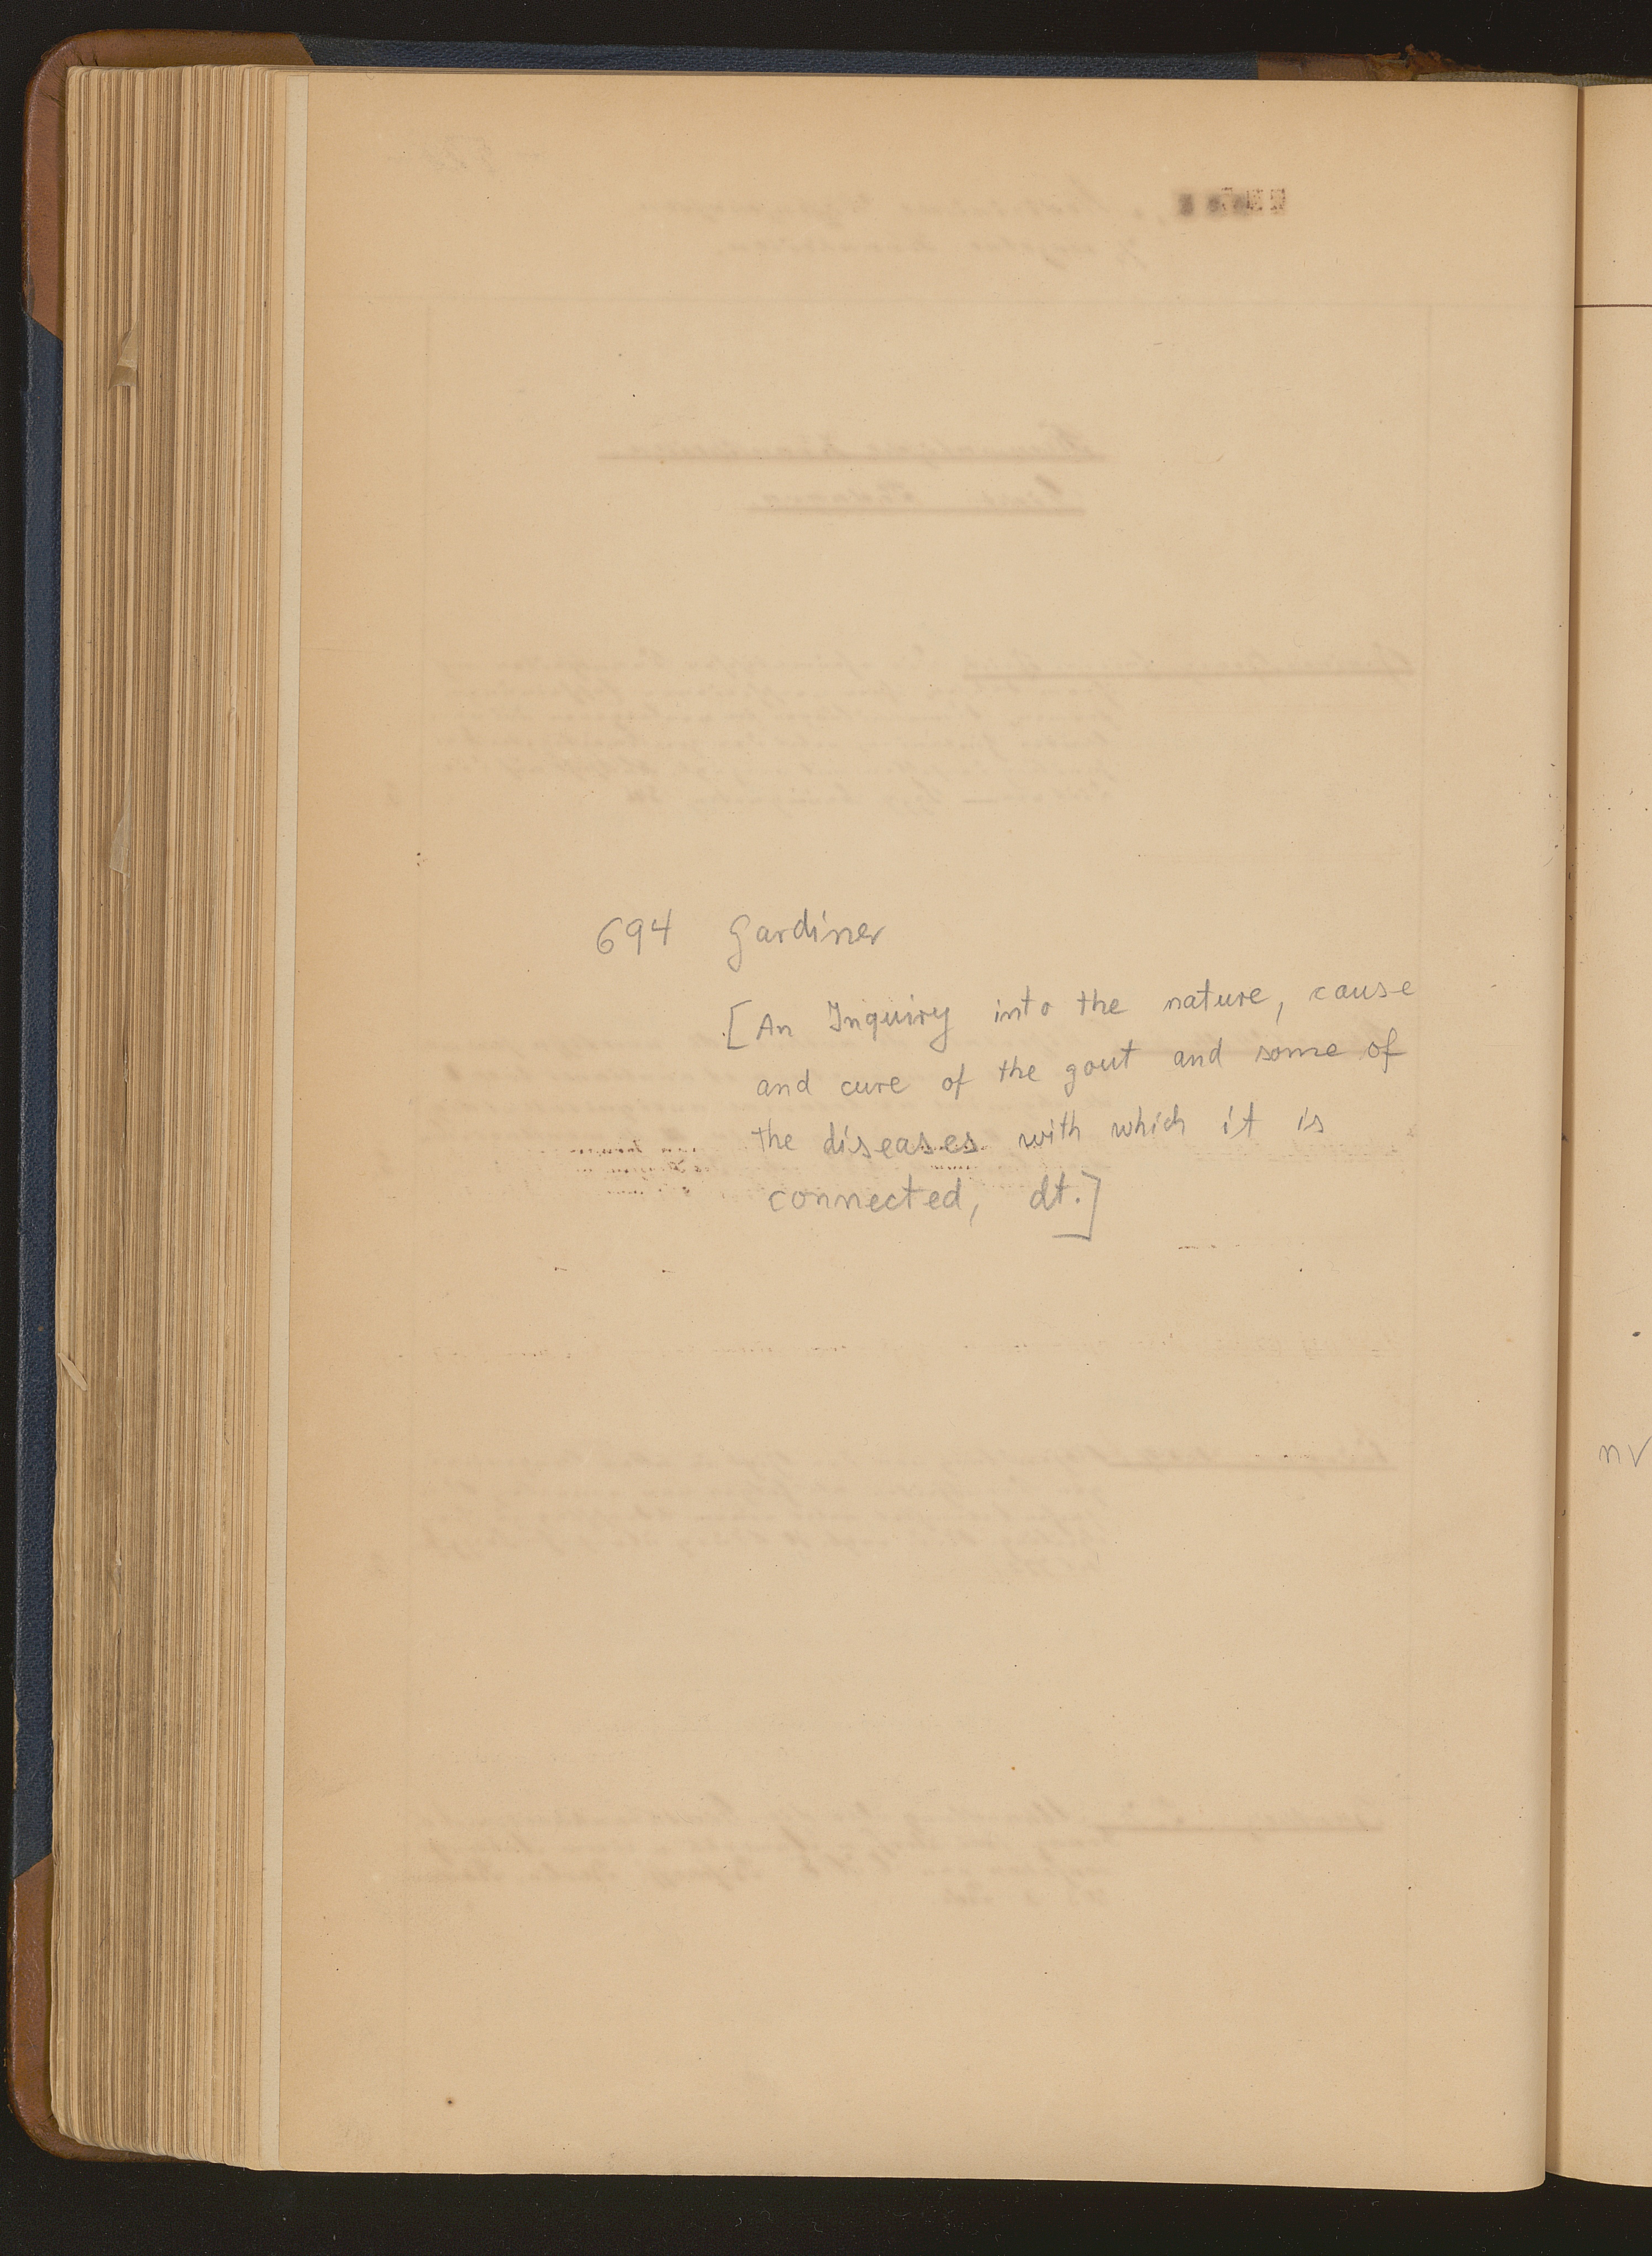 694 Gardiner
[An Inquiry into the nature, cause
and cure of the gout and some of
the diseases with which it is
connected, dt.]